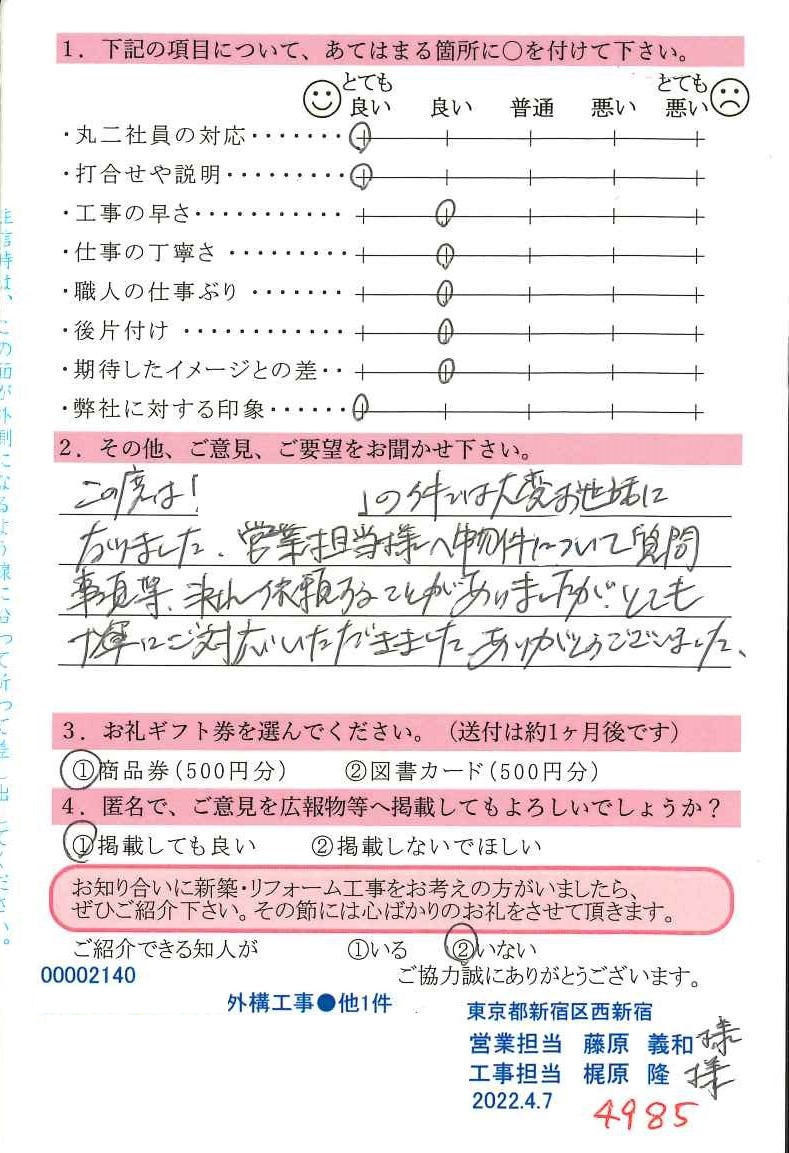 1．下記の項目について、あてはまる箇所に○を付けて下さい。
とても良い 良い 普通 悪い とても悪い
・丸二社員の対応・・・・・・・
・打合せや説明・・・・・・・・・
・工事の早さ・・・・・・・・・・・
・仕事の丁寧さ・・・・・・・・・
・職人の仕事ぶり・・・・・・・
・後片付け・・・・・・・・・・・・
・期待したイメージとの差・・
・弊社に対する印象・・・・・・
2．その他、ご意見、ご要望をお聞かせ下さい。
この度は「 」の件では大変お世話に
なりました。営業担当様へ物件について質問
事項等、決れ依頼することがありましたが、とても
丁寧にご対応いただきました。ありがとうございました。
3．お礼ギフト券を選んでください。（送付は約1ヶ月後です）
①商品券（500円分） ②図書カード（500円分）
4．匿名で、ご意見を広報物等へ掲載してもよろしいでしょうか？
①掲載しても良い ②掲載しないでほしい
お知り合いに新築・リフォーム工事をお考えの方がいましたら、
ぜひご紹介下さい。その節には心ばかりのお礼をさせて頂きます。
ご紹介できる知人が ①いる ②いない
00002140 ご協力誠にありがとうございます。
外構工事●他1件
東京都新宿区西新宿
営業担当 藤原 義和様
工事担当 梶原 隆 様
2022.4.7
4985